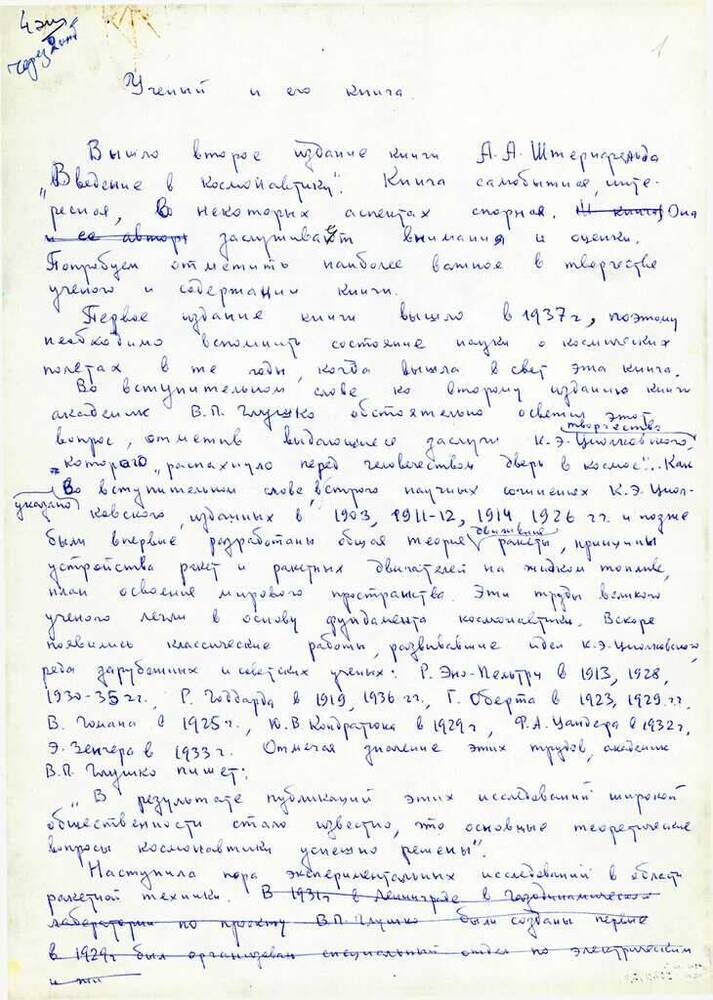 4 экз
через 2 инт
1
Ученый и его книга.
Вышло второе издание книги А.А. Штернфельда
„Введение в космонавтику". Книга самобытная, инте-
ресная, во некоторых аспектах спорная. И книга Она
и ее автор заслуживает внимания и оценки.
Попробуем отметить наиболее важное в творчестве
ученого и содержании книги.
Первое издание книги вышло в 1937 г, поэтому
необходимо вспомнить состояние науки о космических
полетах в те годы, когда вышла в свет эта книга.
Во вступительном слове ко второму изданию книги
академик В.П. Глушко обстоятельно осветил этот
творчество
вопрос, отметив выдающиеся заслуги К.Э. Циолковского,
которого „распахнуло перед человечеством дверь в космос". Как
указано Во вступительном слове, в строго научных сочинениях К.Э. Циол-
ковского, изданных в 1903, 1911-12, 1914, 1926 гг. и позже
движения
были впервые разработаны общая теория ракеты, принципы
устройства ракет и ракетных двигателей на жидком топливе,
план освоения мирового пространства. Эти труды великого
ученого легли в основу фундамента космонавтики. Вскоре
появились классические работы, развивавшие идеи К.Э. Циолковского,
ряда зарубежных и советских ученых: Р. Эно-Пельтри в 1913, 1928,
1930-35 гг., Р. Годдарда в 1919, 1936 гг., Г. Оберта в 1923, 1929 гг.
В. Гомана в 1925 г., Ю.В. Кондратюка в 1929 г, Ф.А. Цандера в 1932 г,
Э. Зенгера в 1933 г. Отмечая значение этих трудов, академик
В.П. Глушко пишет:
„В результате публикаций этих исследований широкой
общественности стало известно, что основные теоретические
вопросы космонавтики успешно решены".
Наступила пора экспериментальных исследований в области
ракетной техники. В 1931 г в Ленинграде в Газодинамической
лаборатории по проекту В.П. Глушко были созданы первые
в 1929 г был организован специальный отдел по электрическим
и